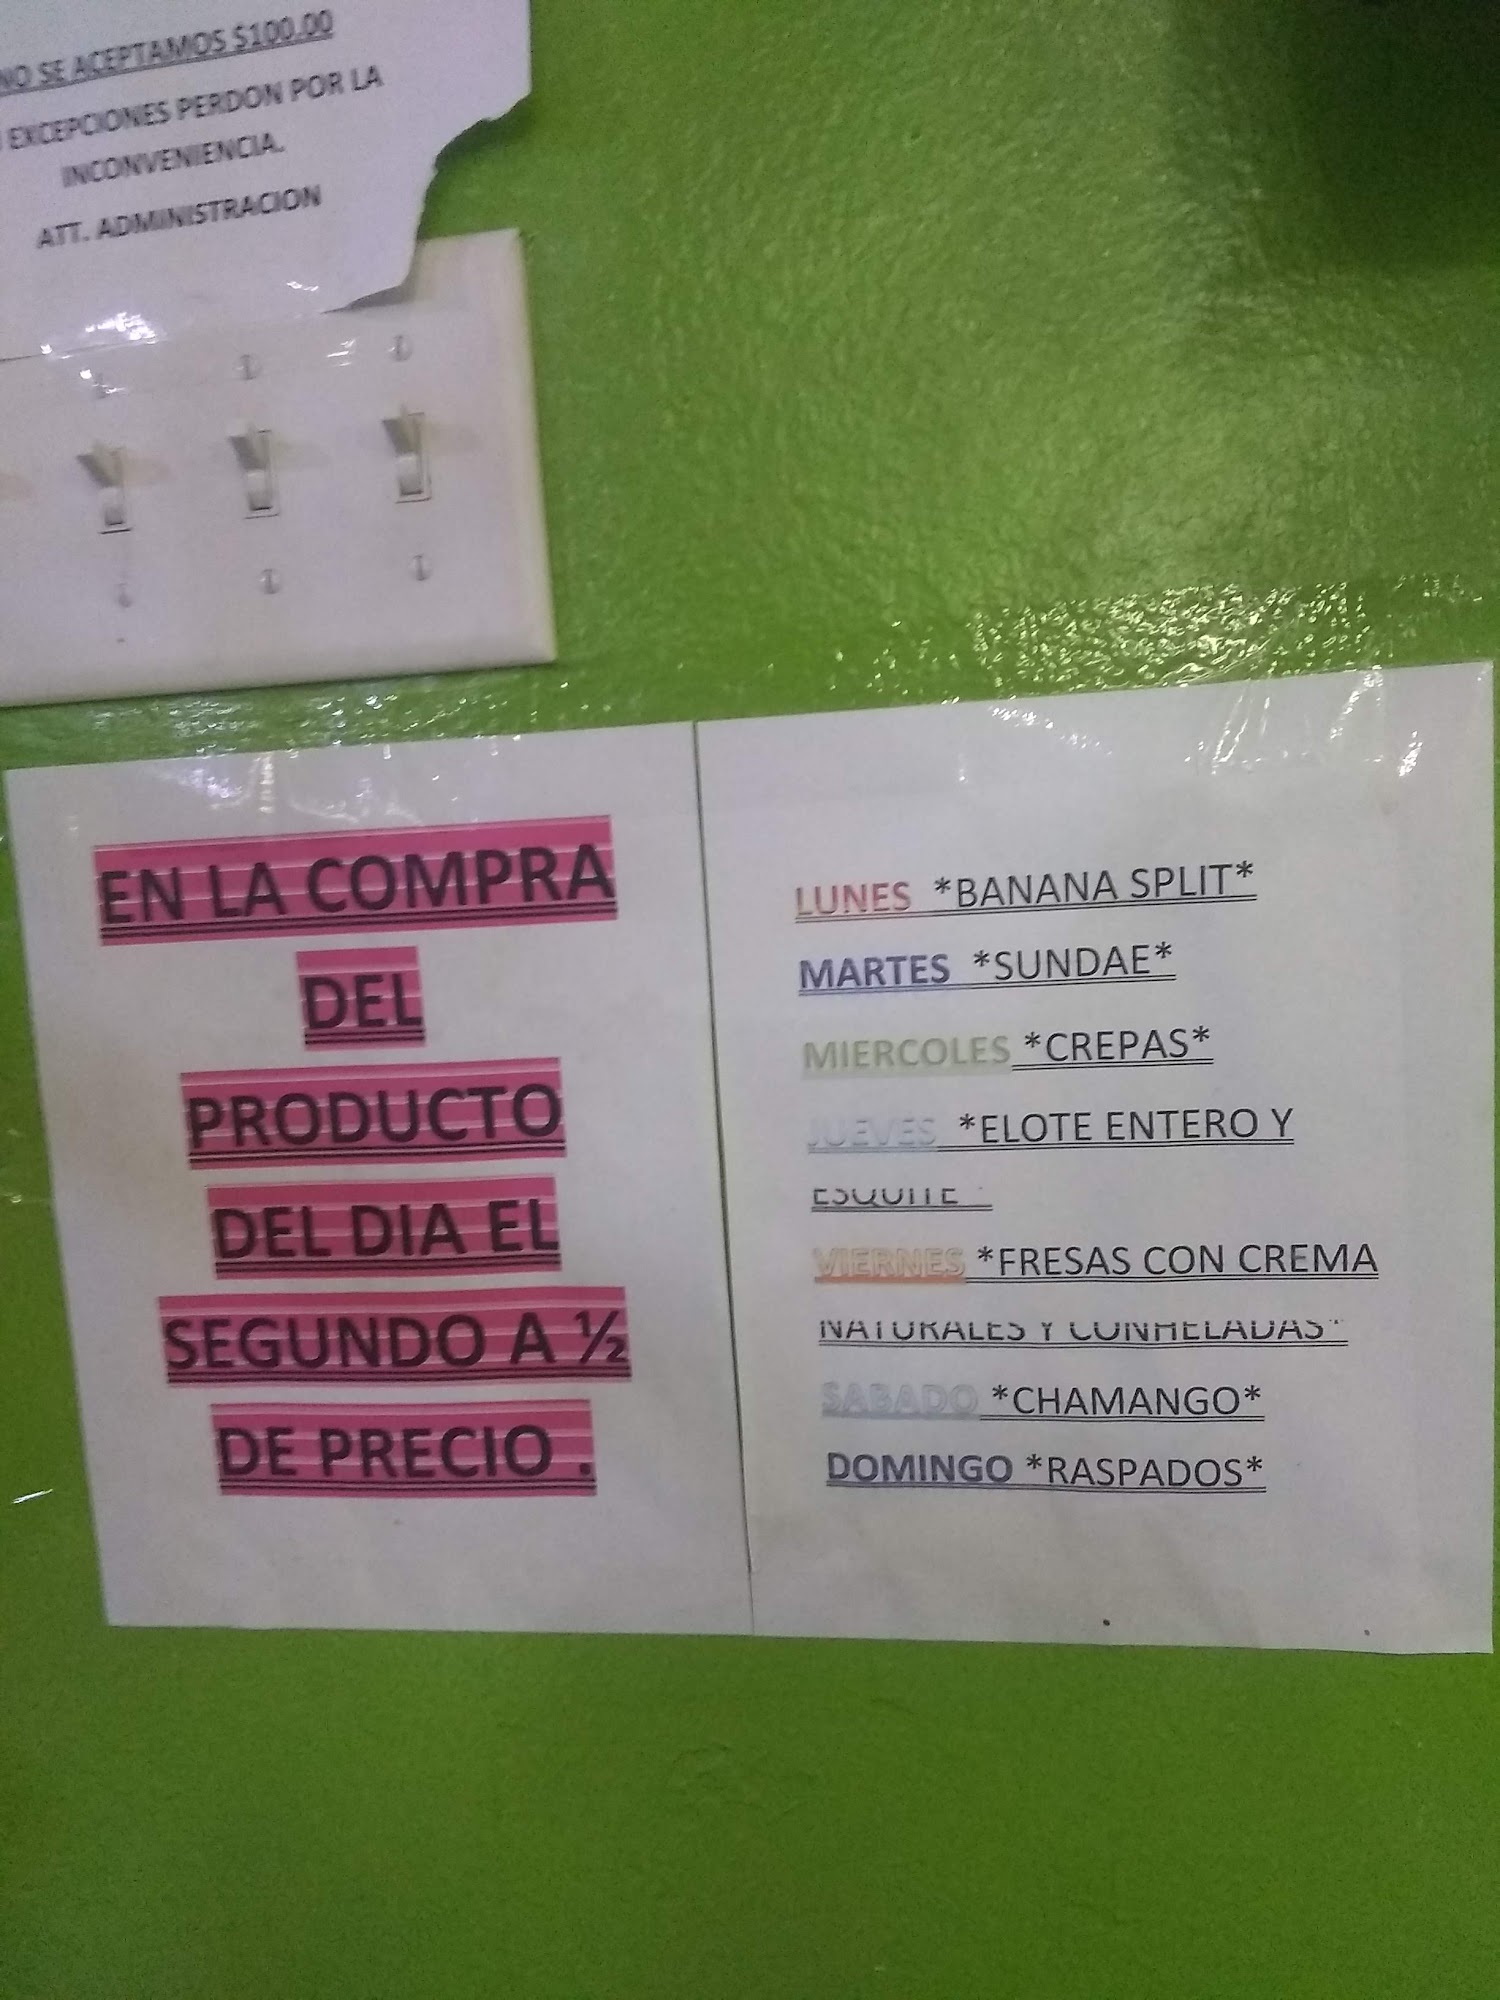 NO SE ACEPTAMOS $100.00
EXCEPCIONES PERDON POR LA
INCONVENIENCIA.
ATT. ADMINISTRACION
EN LA COMPRA
DEL
PRODUCTO
DEL DIA EL
SEGUNDO A ½
DE PRECIO .
LUNES *BANANA SPLIT*
MARTES *SUNDAE*
MIERCOLES *CREPAS*
JUEVES *ELOTE ENTERO Y
ESQUITE
VIERNES *FRESAS CON CREMA
NATURALES Y CONHELADAS*
SABADO *CHAMANGO*
DOMINGO *RASPADOS*